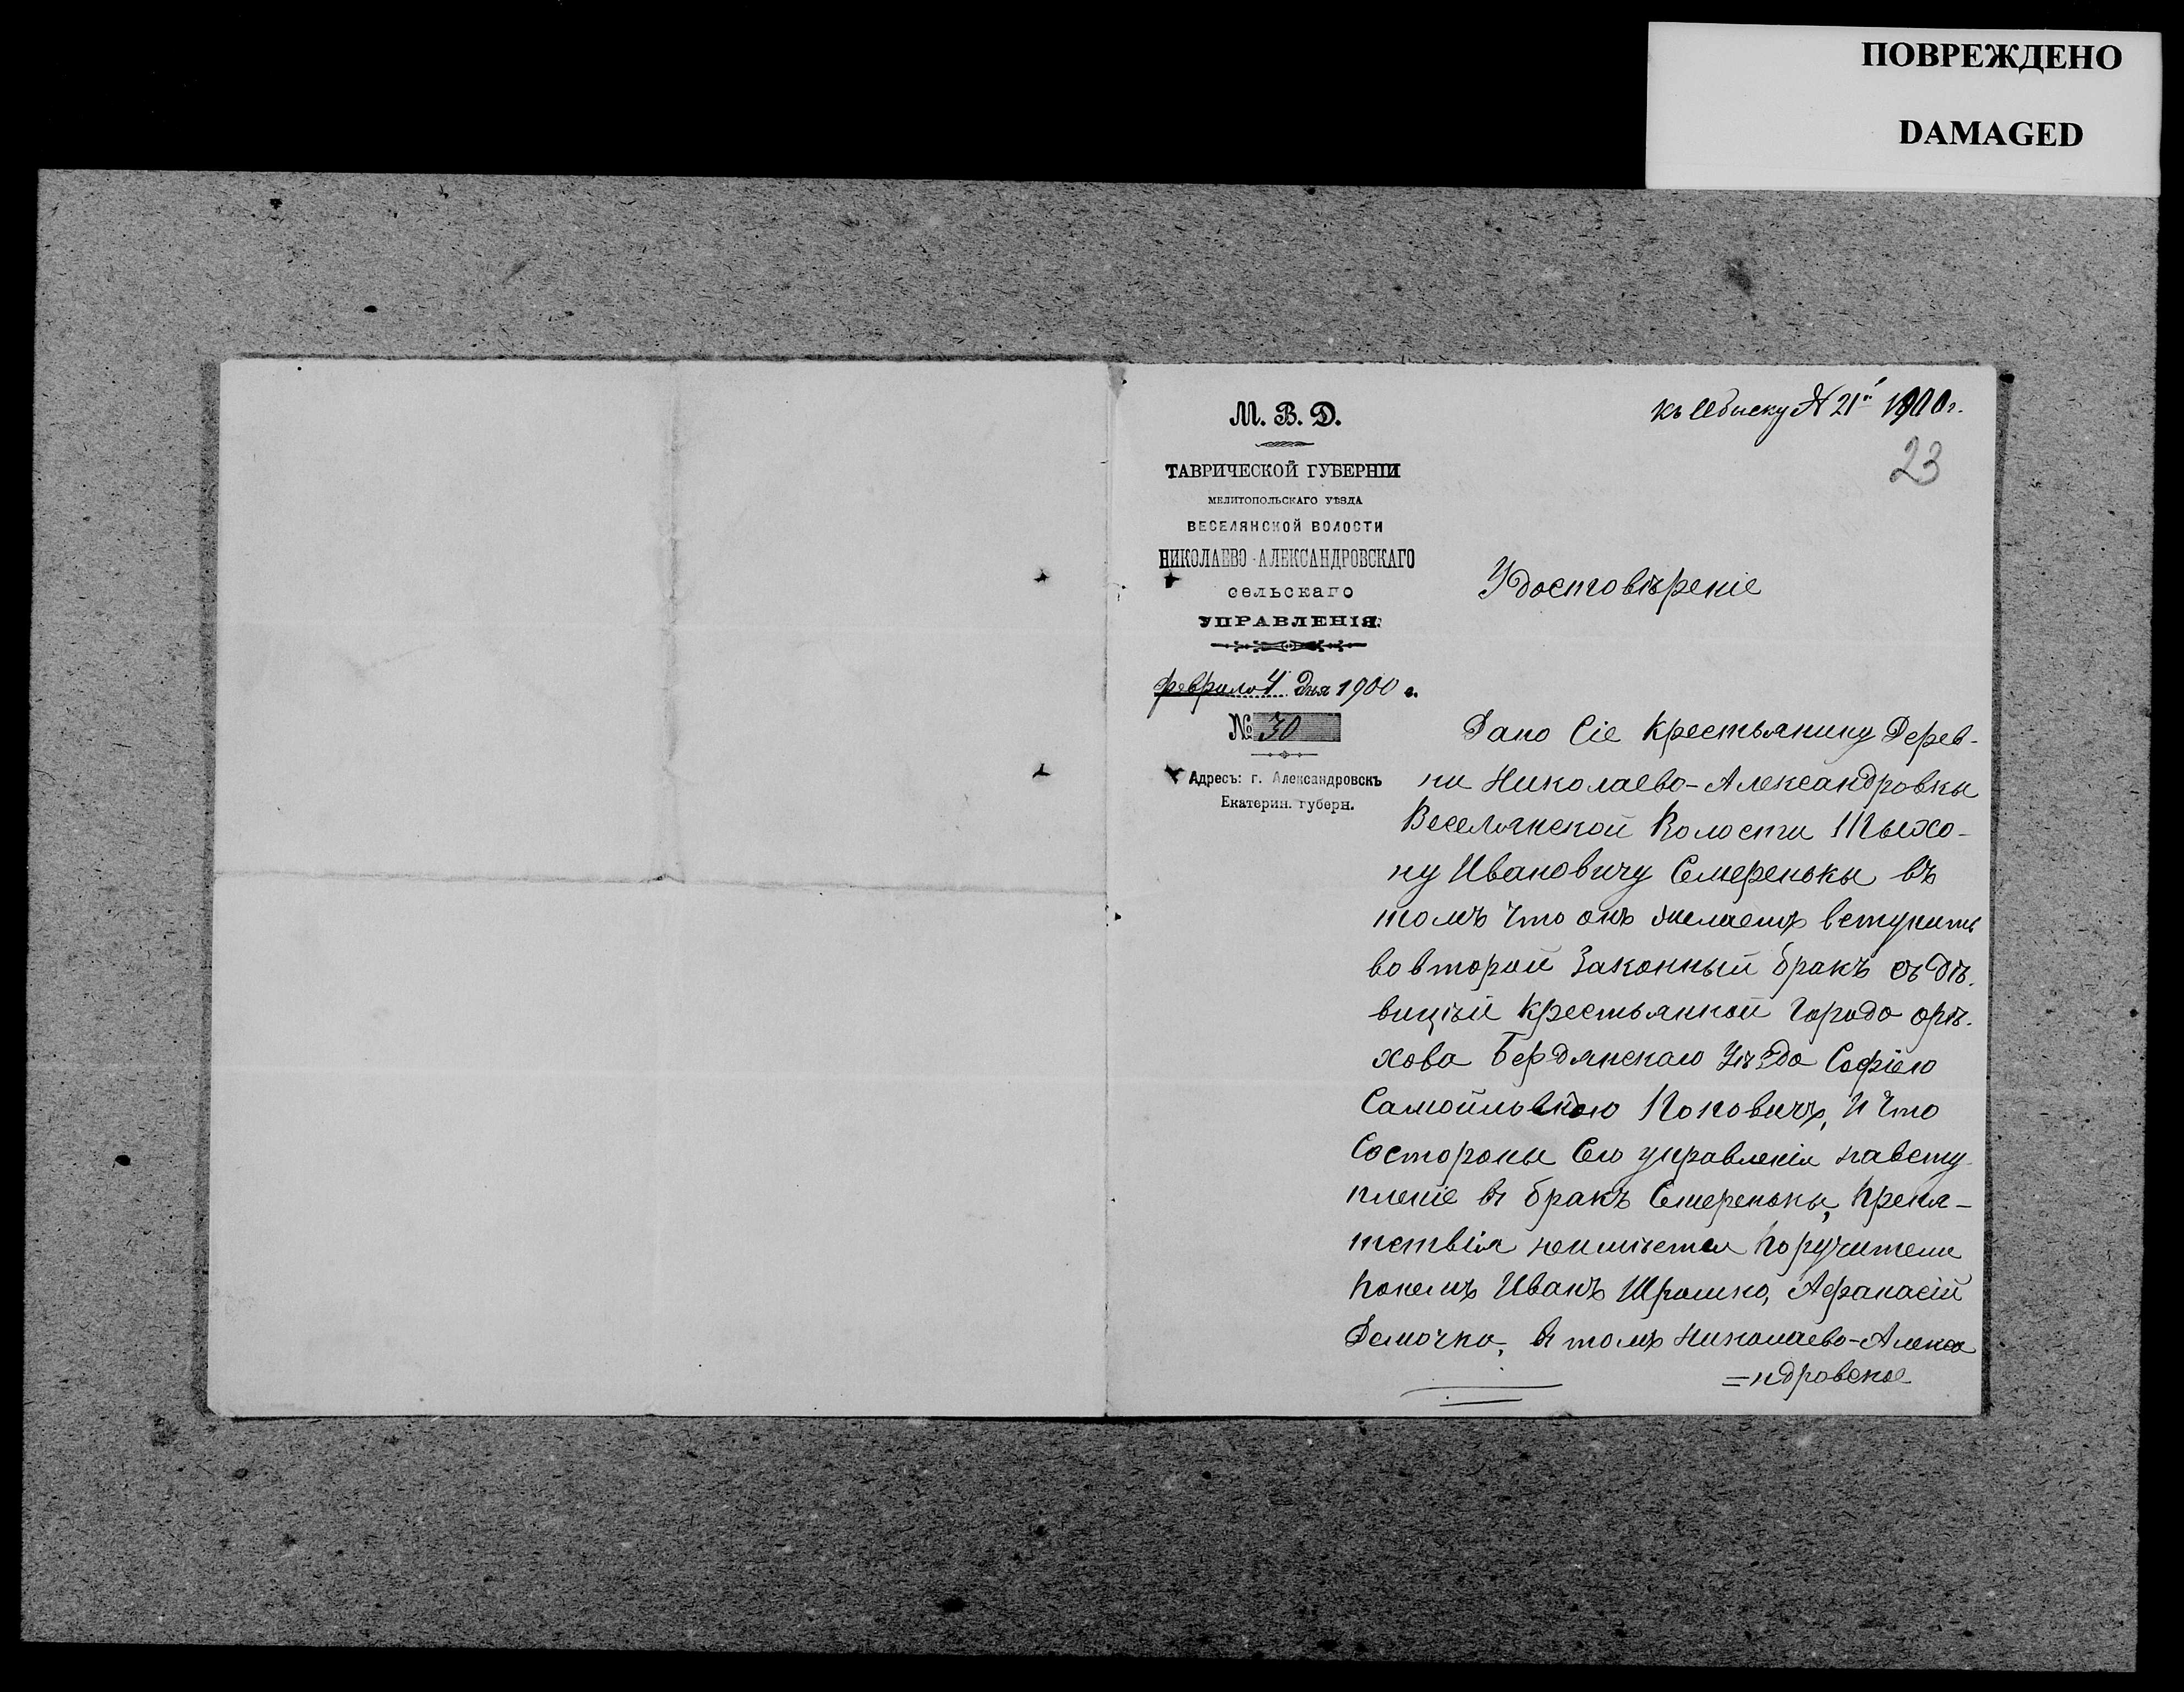 ПОВРЕЖДЕНО
DAMAGED
М. В. Д.
ТАВРИЧЕСКОЙ ГУБЕРНІИ
МЕЛИТОПОЛЬСКАГО УѢЗДА
ВЕСЕЛЯНСКОЙ ВОЛОСТИ
НИКОЛАЕВО-АЛЕКСАНДРОВСКАГО
сельскаго
УПРАВЛЕНІЯ.
февраля 4 дня 1900 г.
№ 30
Адресъ: г. Александровскъ
Екатерин. губерн.
Къ Обыску № 21й 1900 г.
23
Удостовѣреніе
Дано Сіе Крестьянину Дерев-
ни Николаево-Александровки
Веселянской Волости Тыхо-
ну Ивановичу Смеренокы въ
томъ что онъ желаетъ вступить
во второй Законный бракъ съ дѣ-
вицѣй Крестьянкой Города орѣ-
хова Бердянскаго Уѣзда Софіею
Самойловною Попович, И что
Состороны Сего управленія навсту-
пленіе въ бракъ Смеренокы, Препя-
тствія неимѣется Поручители
Понемъ Иванъ Ярошко, Афанасій
Демочко, въ томъ Николаево-Алекса
=ндровское